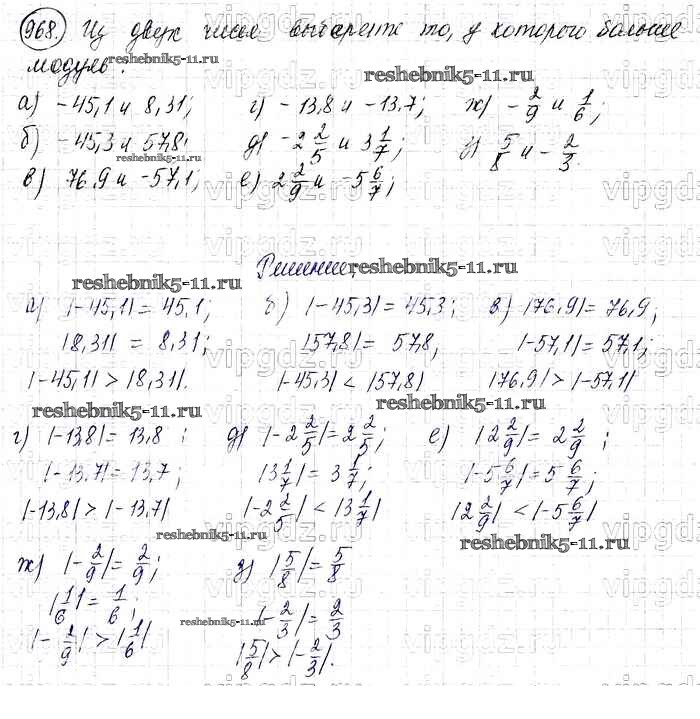 968. Из двух чисел выберите то, у которого больше
модуль.
reshebnik5-11.ru
а) -45,1 и 8,31; г) -13,8 и -13,7; ж) -2/9 и 1/6;
б) -45,3 и 57,8; д) -2 2/5 и 3 1/7; з) 5/8 и -2/3.
reshebnik5-11.ru
в) 76,9 и -57,1; е) 2 2/9 и -5 6/7;
Решение.
reshebnik5-11.ru reshebnik5-11.ru
а) |-45,1| = 45,1; б) |-45,3| = 45,3; в) |76,9| = 76,9;
|8,31| = 8,31; |57,8| = 57,8, |-57,1| = 57,1;
|-45,1| > |8,31|. |-45,3| < |57,8| |76,9| > |-57,1|
reshebnik5-11.ru reshebnik5-11.ru
г) |-13,8| = 13,8; д) |-2 2/5| = 2 2/5; е) |2 2/9| = 2 2/9;
|-13,7| = 13,7; |3 1/7| = 3 1/7; |-5 6/7| = 5 6/7;
|-13,8| > |-13,7| |-2 2/5| < |3 1/7| |2 2/9| < |-5 6/7|
reshebnik5-11.ru reshebnik5-11.ru
ж) |-2/9| = 2/9; з) |5/8| = 5/8
|1/6| = 1/6; |-2/3| = 2/3
reshebnik5-11.ru
|-2/9| > |1/6| |5/8| > |-2/3|.